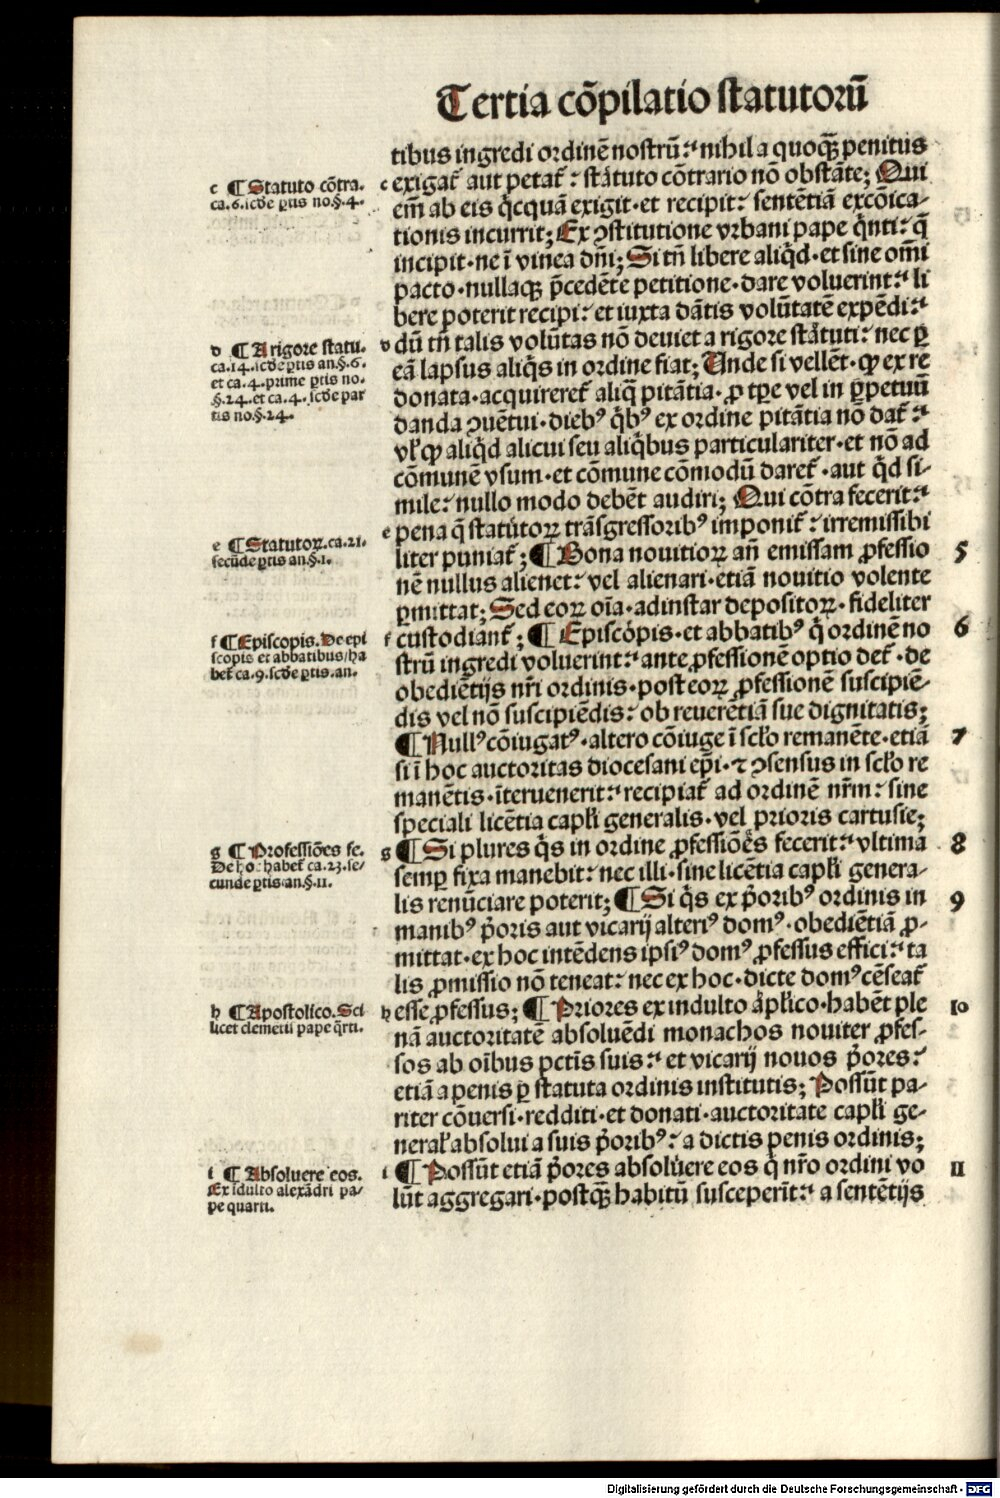 Tertia cõpilatio statutorũ
tibus ingredi ordinẽ nostrũ: nihil a quoqꝫ penitus
c exigat̃ aut petat̃: statuto cõtrario nõ obstãte; Qui
em̃ ab eis q̃cquã exigit·et recipit: sentẽtiã excõica-
tionis incurrit; Ex ꝯstitutione vrbani pape q̃nti: q̃
incipit·ne ĩ vinea dñi; Si tñ libere aliq̃d·et sine om̃i
pacto·nullaqꝫ p̃cedẽte petitione·dare voluerint: li
bere poterit recipi: et iuxta dãtis volũtatẽ expẽdi:
d dũ tñ talis volũtas nõ deuiet a rigore statuti: nec ꝑ
eã lapsus aliq̃s in ordine fiat; Unde si vellẽt·ꝙ ex re
donata·acquireret̃ aliq̃ pitãtia·ꝓ tꝑe vel in ꝑpetuũ
danda ꝯuẽtui·dieb⁹ q̃b⁹ ex ordine pitãtia nõ dat̃:
vl̃ ꝙ aliq̃d alicui seu aliq̃bus particulariter·et nõ ad
cõmunẽ vsum·et cõmune cõmodũ daret̃·aut q̃d si-
mile: nullo modo debẽt audiri; Qui cõtra fecerit:
e pena q̃ statutoꝝ trãsgressorib⁹ imponit̃: irremissibi
liter puniat̃; ¶ Bona nouitioꝝ añ emissam ꝓfessio 5
nẽ nullus alienet: vel alienari·etiã nouitio volente
ꝑmittat; Sed eoꝝ oĩa·adinstar depositoꝝ·fideliter
f custodiant̃; ¶ Episcopis·et abbatib⁹ q̃ ordinẽ no 6
strũ ingredi voluerint: ante ꝓfessionẽ optio det̃·de
obediẽtijs nr̃i ordinis·post eoꝝ ꝓfessionẽ suscipiẽ-
dis vel nõ suscipiẽdis: ob reuerẽtiã sue dignitatis;
¶ Null⁹ cõiugat⁹·altero cõiuge ĩ scl̃o remanẽte·etiã 7
si ĩ hoc auctoritas diocesani ep̃i·⁊ ꝯsensus in scl̃o re
manẽtis·ĩteruenerit: recipiat̃ ad ordinẽ nr̃m: sine
speciali licẽtia capl̃i generalis·vel prioris cartusie;
g ¶ Si plures q̃s in ordine ꝓfessiões fecerit: vltima 8
semꝑ fixa manebit: nec illi·sine licẽtia capl̃i genera-
lis renũciare poterit; ¶ Si q̃s ex p̃orib⁹ ordinis in 9
manib⁹ p̃oris aut vicarij alteri⁹ dom⁹·obediẽtiã ꝓ-
mittat·ex hoc intẽdens ipsi⁹ dom⁹ ꝓfessus effici: ta
lis ꝓmissio nõ teneat: nec ex hoc·dicte dom⁹ cẽseat̃
h esse ꝓfessus; ¶ Priores ex indulto ap̃lico·habẽt ple 10
nã auctoritatẽ absoluẽdi monachos nouiter ꝓfes-
sos ab oĩbus pctĩs suis: et vicarij nouos p̃ores:
etiã a penis ꝑ statuta ordinis institutis; Possũt pa-
riter cõuersi·redditi·et donati·auctoritate capl̃i ge-
neral̃ absolui a suis p̃orib⁹: a dictis penis ordinis;
i ¶ Possũt etiã p̃ores absoluere eos q̃ nr̃o ordini vo 11
lũt aggregari·postqꝫ habitũ susceperĩt: a sentẽtijs
c ¶ Statuto cõtra.
ca.6.scďe ꝑtis no.§.4.
d ¶ A rigore statu.
ca.14.scďe ꝑtis an.§.6.
et ca.4.prime ꝑtis no.
§.24.et ca.4.scďe par
tis no.§.24.
e ¶ Statutoꝝ.ca.21.
secũde ꝑtis an.§.1.
f ¶ Episcopis.De epi
scopis et abbatibus/ha
bet̃ ca.9.scďe ꝑtis.an.
g ¶ Professiões fe.
De hoc habet̃ ca.23.se/
cunde ꝑtis an.§.11.
h ¶ Apostolico.Sci
licet clemetii pape q̃rti.
i ¶ Absoluere eos.
Ex ĩdulto alexãdri pa/
pe quarti.
Digitalisierung gefördert durch die Deutsche Forschungsgemeinschaft - DFG